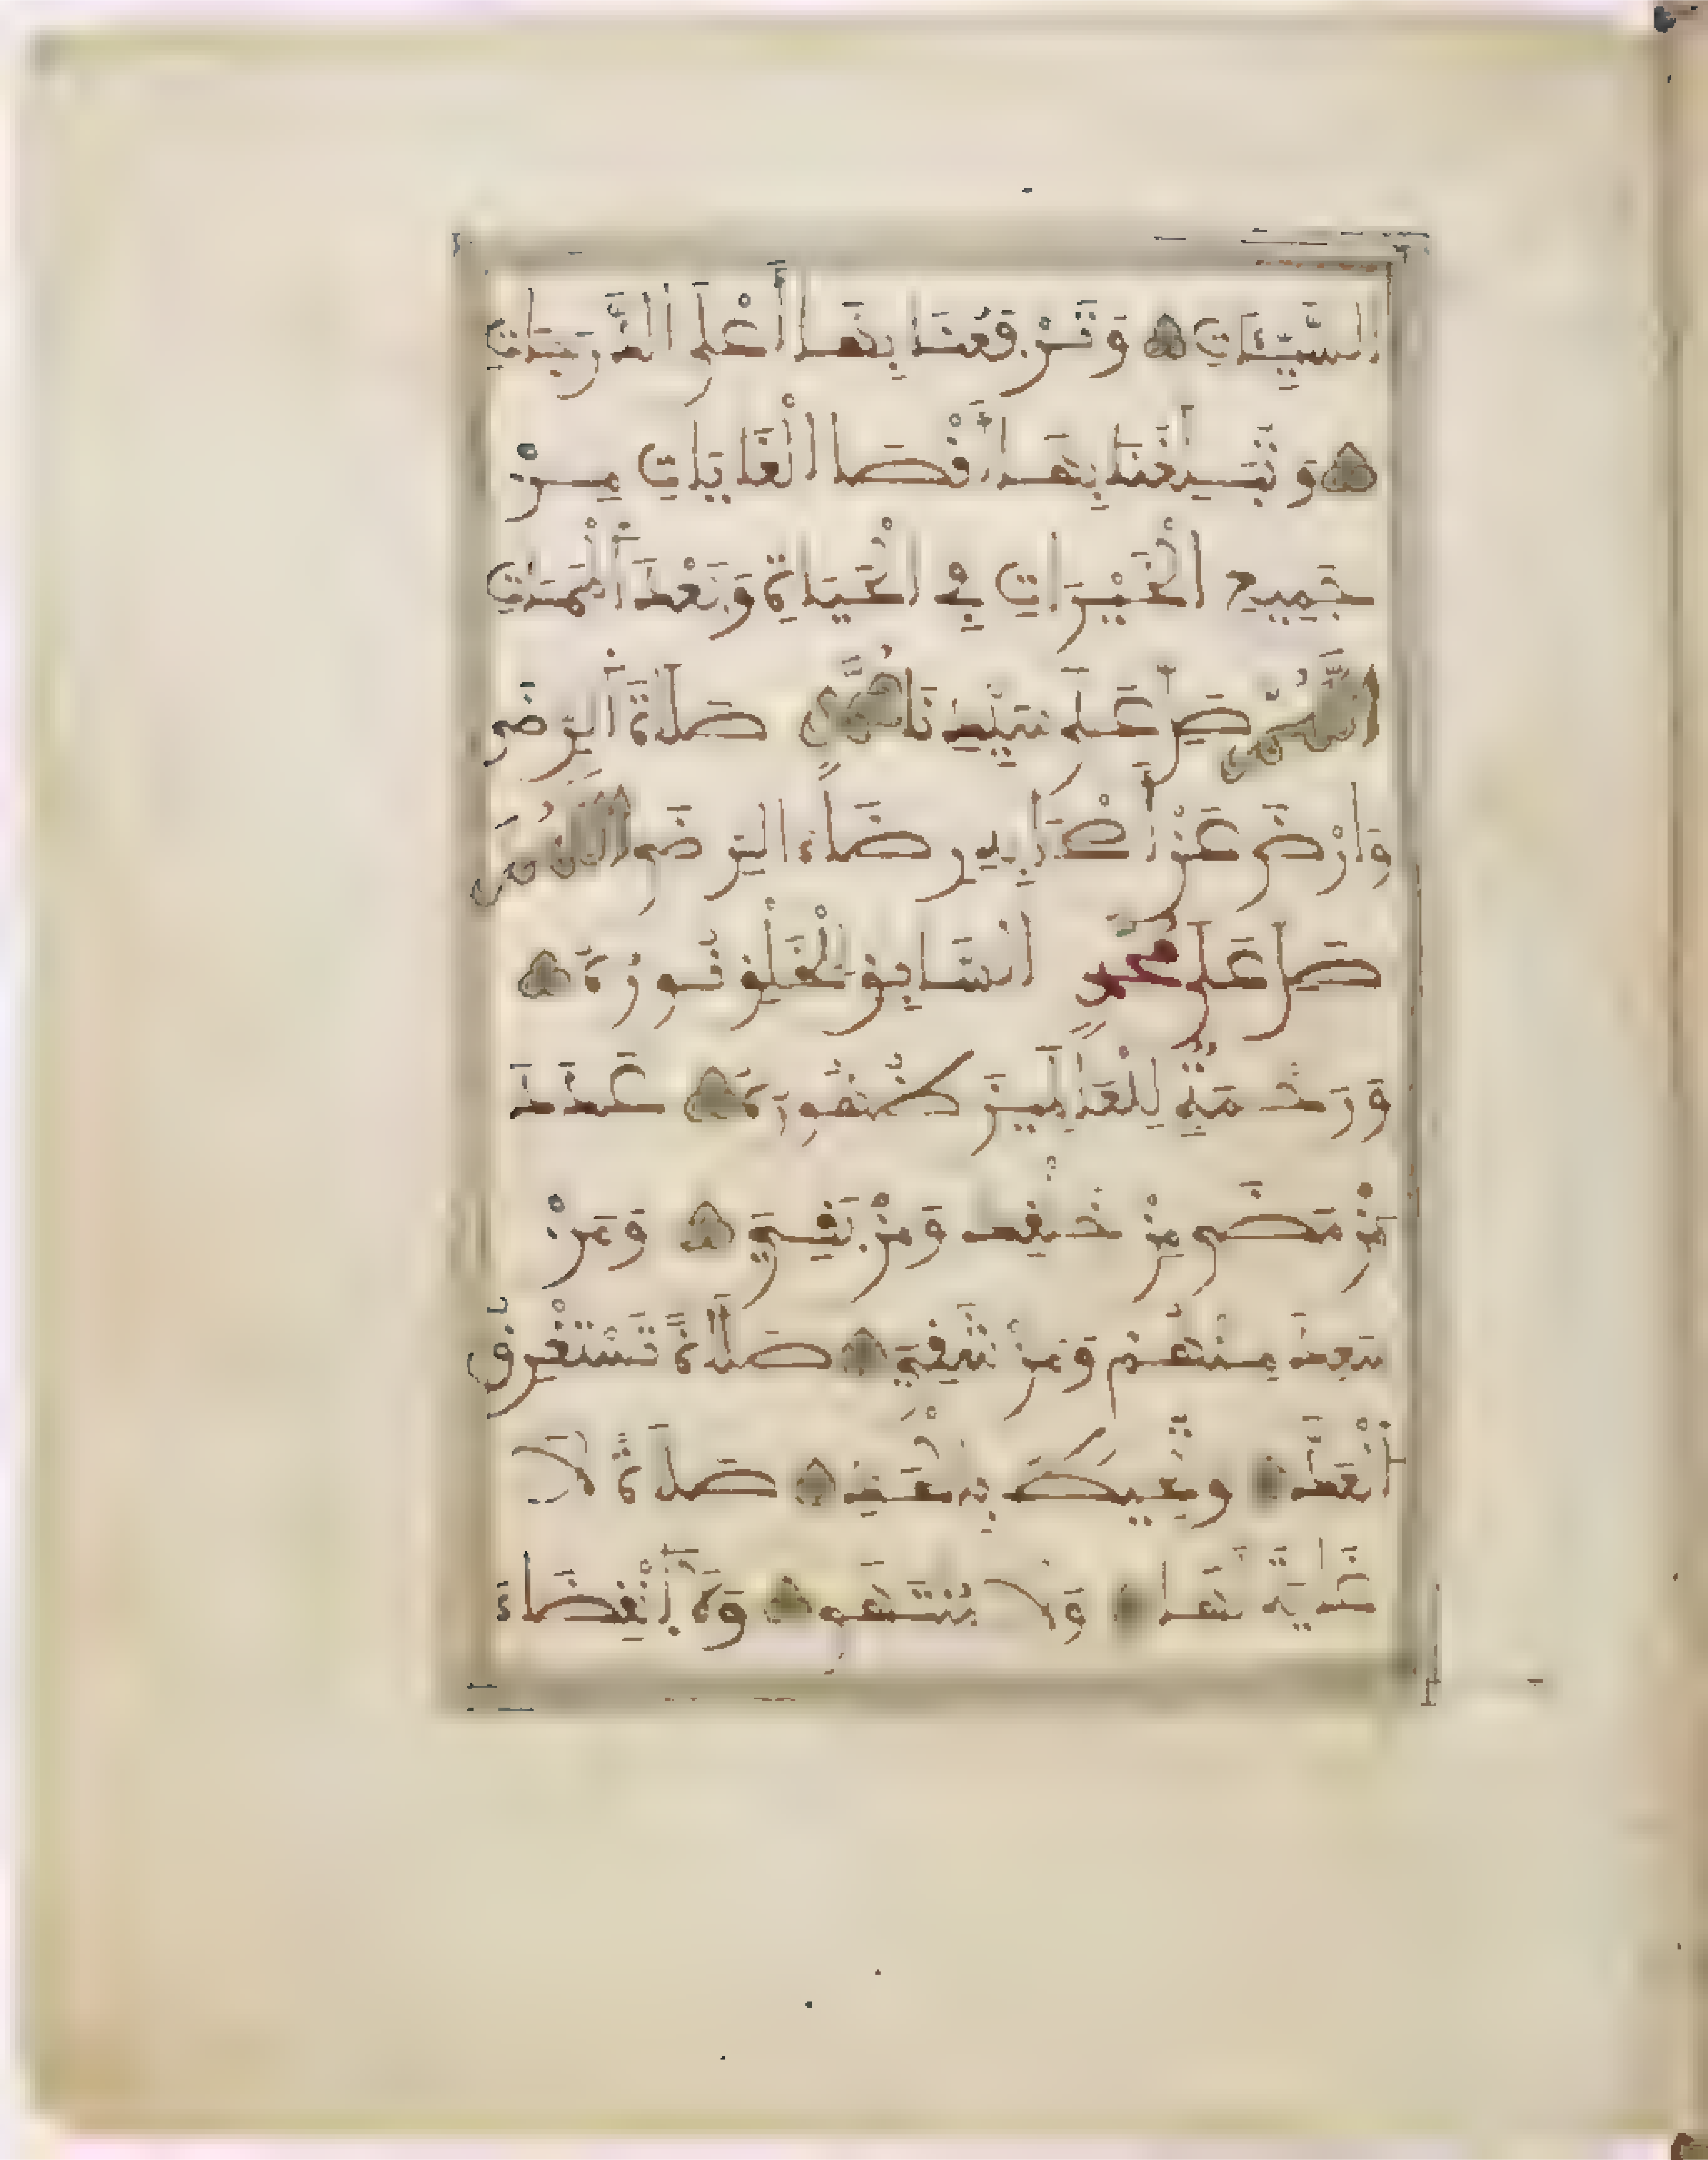 السَّيِّـَٔاتِ وَتَرْفَعُنَا بِهَا أَعْلَى الدَّرَجَاتِ
وَتُبَلِّغُنَا بِهَا أَقْصَا الْغَايَاتِ مِنْ
جَمِيعِ الْخَيْرَاتِ فِي الْحَيَاةِ وَبَعْدَ الْمَمَاتِ
اللَّهُمَّ صَلِّ عَلَى سَيِّدِنَا مُحَمَّدٍ صَلَاةَ الرِّضَى
وَارْضَ عَنْ أَصْحَابِهِ رِضَاءَ الرِّضَى اللَّهُمَّ
صَلِّ عَلَى مُحَمَّدٍ السَّابِقِ لِلْخَلْقِ نُورُهُ
وَرَحْمَةٌ لِلْعَالَمِينَ ظُهُورُهُ عَدَدَ
مَنْ مَضَى مِنْ خَلْقِكَ وَمَنْ بَقِيَ وَمَنْ
سَعِدَ مِنْهُمْ وَمَنْ شَقِيَ صَلَاةً تَسْتَغْرِقُ
الْعَدَّ وَتُحِيطُ بِالْحَدِّ صَلَاةً لَا
غَايَةَ لَهَا وَلَا مُنْتَهَى وَلَا انْقِضَاءَ